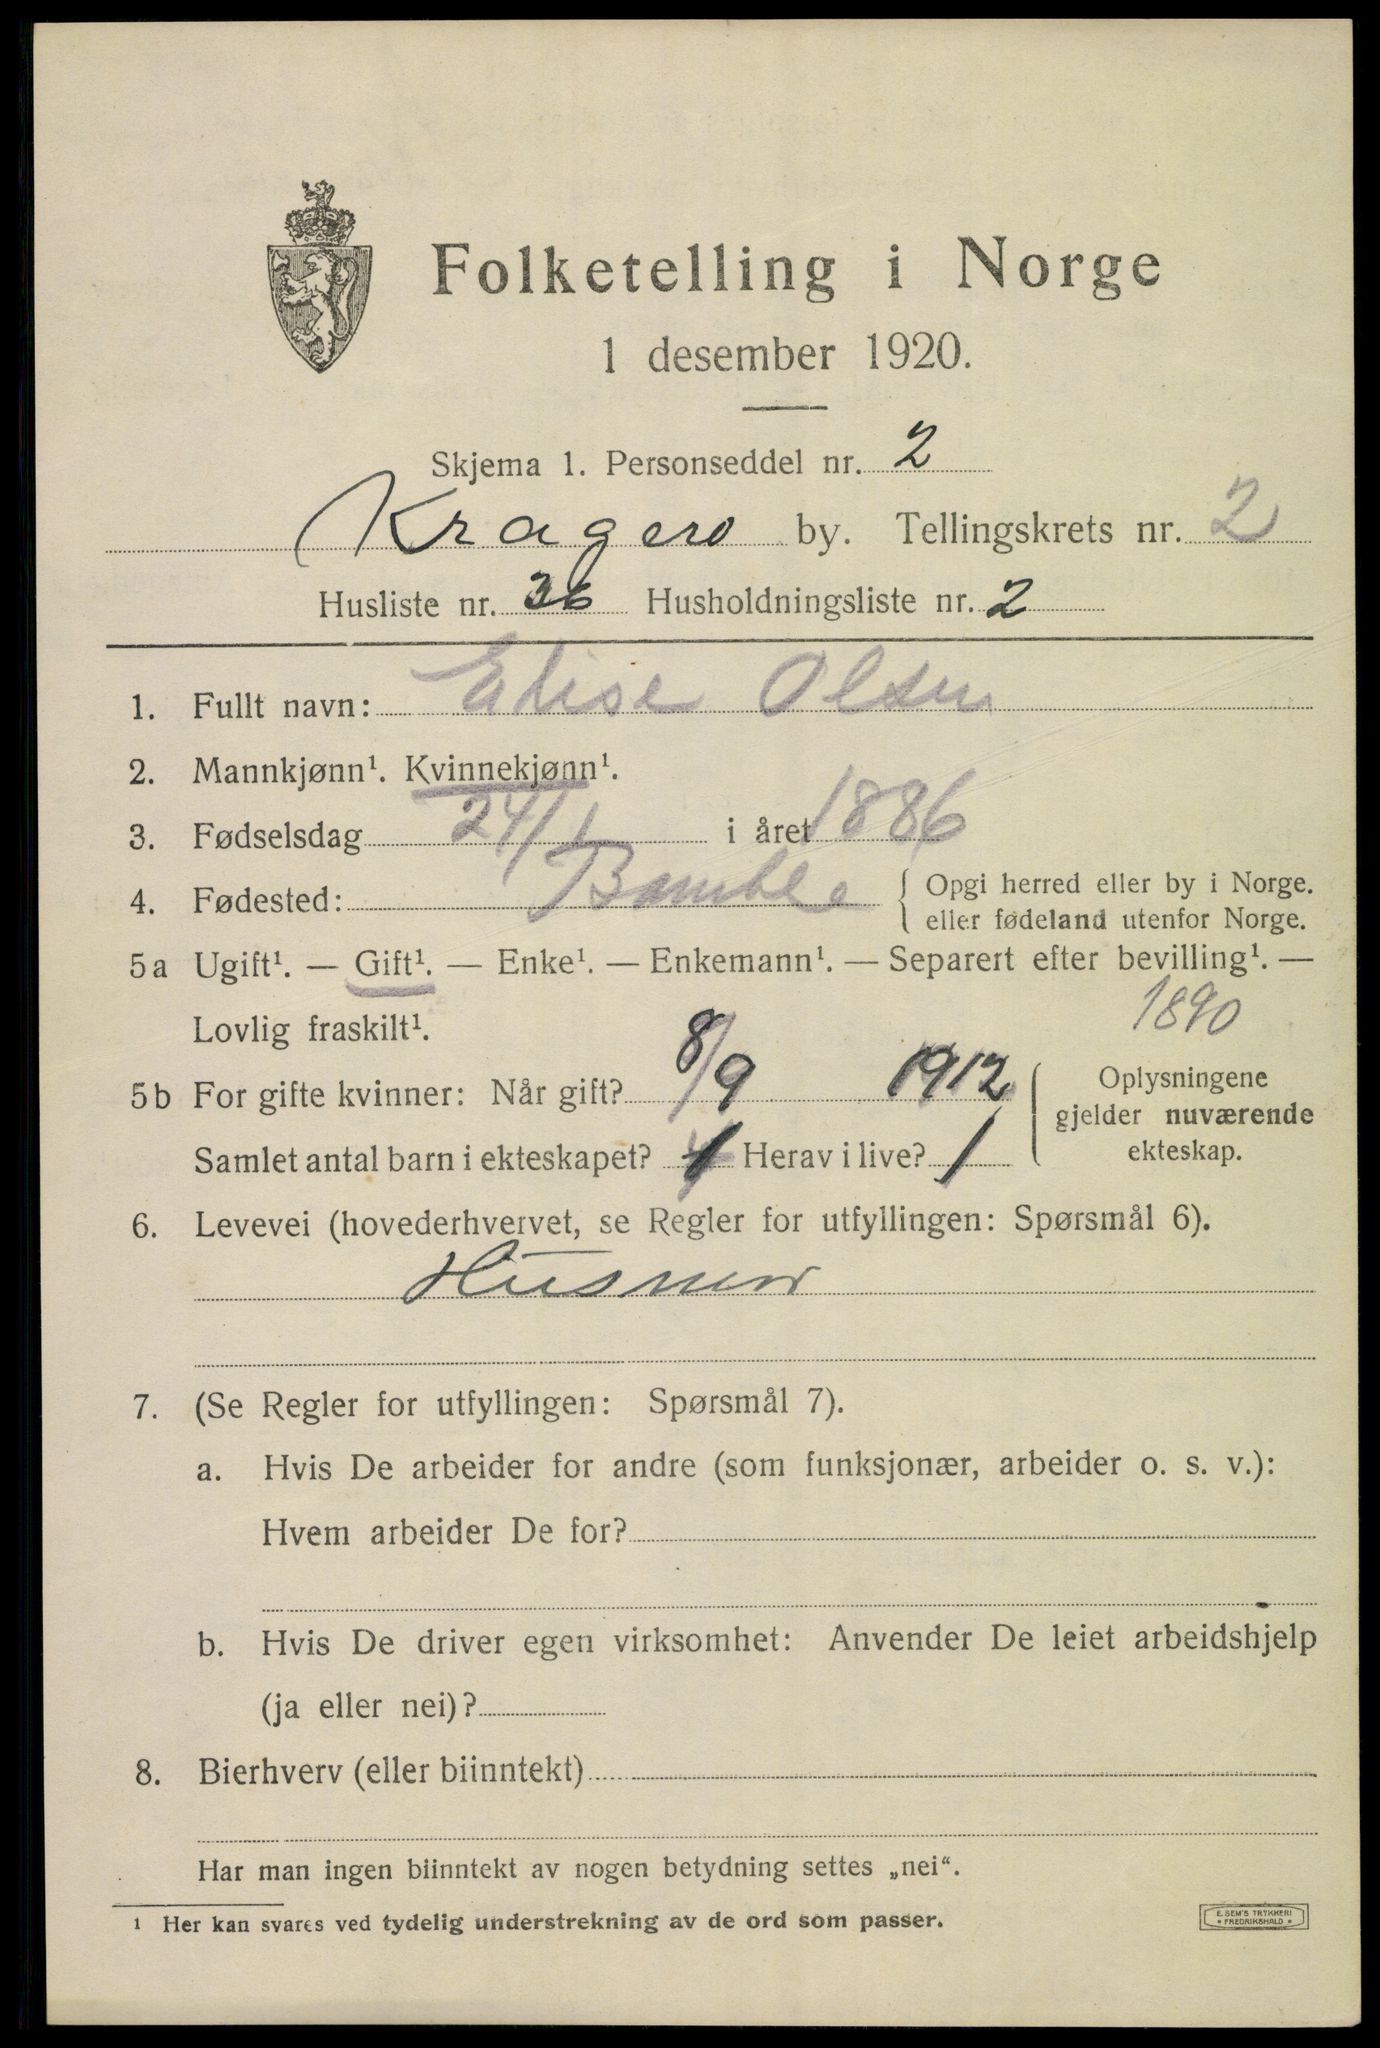 Folketelling i Norge
1 desember 1920.
Skjema 1. Personseddel nr. 2
Kragerø by. Tellingskrets nr. 2
Husliste nr. 36 Husholdningsliste nr. 2
1. Fullt navn: Elise Olsen
2. Mannkjønn¹. Kvinnekjønn¹.
3. Fødselsdag 24/1 i året 1886
4. Fødested: Bamble { Opgi herred eller by i Norge.
eller fødeland utenfor Norge.
5a Ugift¹. — Gift¹. — Enke¹. — Enkemann¹. — Separert efter bevilling¹. —
Lovlig fraskilt¹. 1890
5b For gifte kvinner: Når gift? 8/9 1912 { Oplysningene
gjelder nuværende
Samlet antal barn i ekteskapet? 1 Herav i live? 1 ekteskap.
6. Levevei (hovederhvervet, se Regler for utfyllingen: Spørsmål 6).
Husmor
7. (Se Regler for utfyllingen: Spørsmål 7).
a. Hvis De arbeider for andre (som funksjonær, arbeider o. s. v.):
Hvem arbeider De for?
b. Hvis De driver egen virksomhet: Anvender De leiet arbeidshjelp
(ja eller nei)?
8. Bierhverv (eller biinntekt)
Har man ingen biinntekt av nogen betydning settes „nei“.
1 Her kan svares ved tydelig understrekning av de ord som passer.
E. SEM'S TRYKKERI
• FREDRIKSHALD •